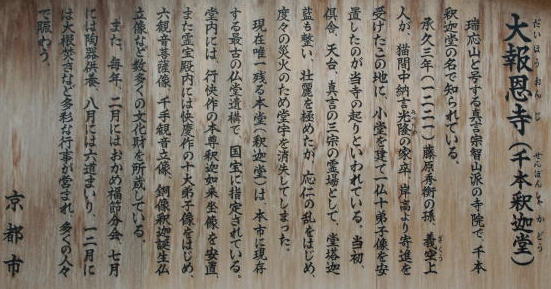 大報恩寺（千本釈迦堂）
だいほうおんじ
せんぼんしゃかどう
瑞応山と号する真言宗智山派の寺院で、千本
釈迦堂の名で知られている。
承久三年（一二二一）藤原秀衡の孫 義空上
ぎくう
人が、猫間中納言光隆の家卒・岸高より寄進を
受けたこの地に、小堂を建て一仏十弟子像を安
置したのが当寺の起りといわれている。当初、
倶舎、天台、真言の三宗の霊場として、堂塔迦
藍も整い、壮麗を極めたが、応仁の乱をはじめ、
度々の災火のため堂宇を消失してしまった。
現在唯一残る本堂（釈迦堂）は、本市に現存
する最古の仏堂遺構で、国宝に指定されている。
堂内には、行快作の本尊釈迦如来坐像を安置、
また霊宝殿内には快慶作の十大弟子像をはじめ、
六観音菩薩像、千手観音立像、銅像釈迦誕生仏
立像など、数多くの文化財を所蔵している。
また、毎年、二月にはおかめ福節分会、七月
には陶器供養、八月には六道まいり、一二月に
は大根焚きなど多彩な行事が営まれ、多くの人々
で賑わう。
京都市